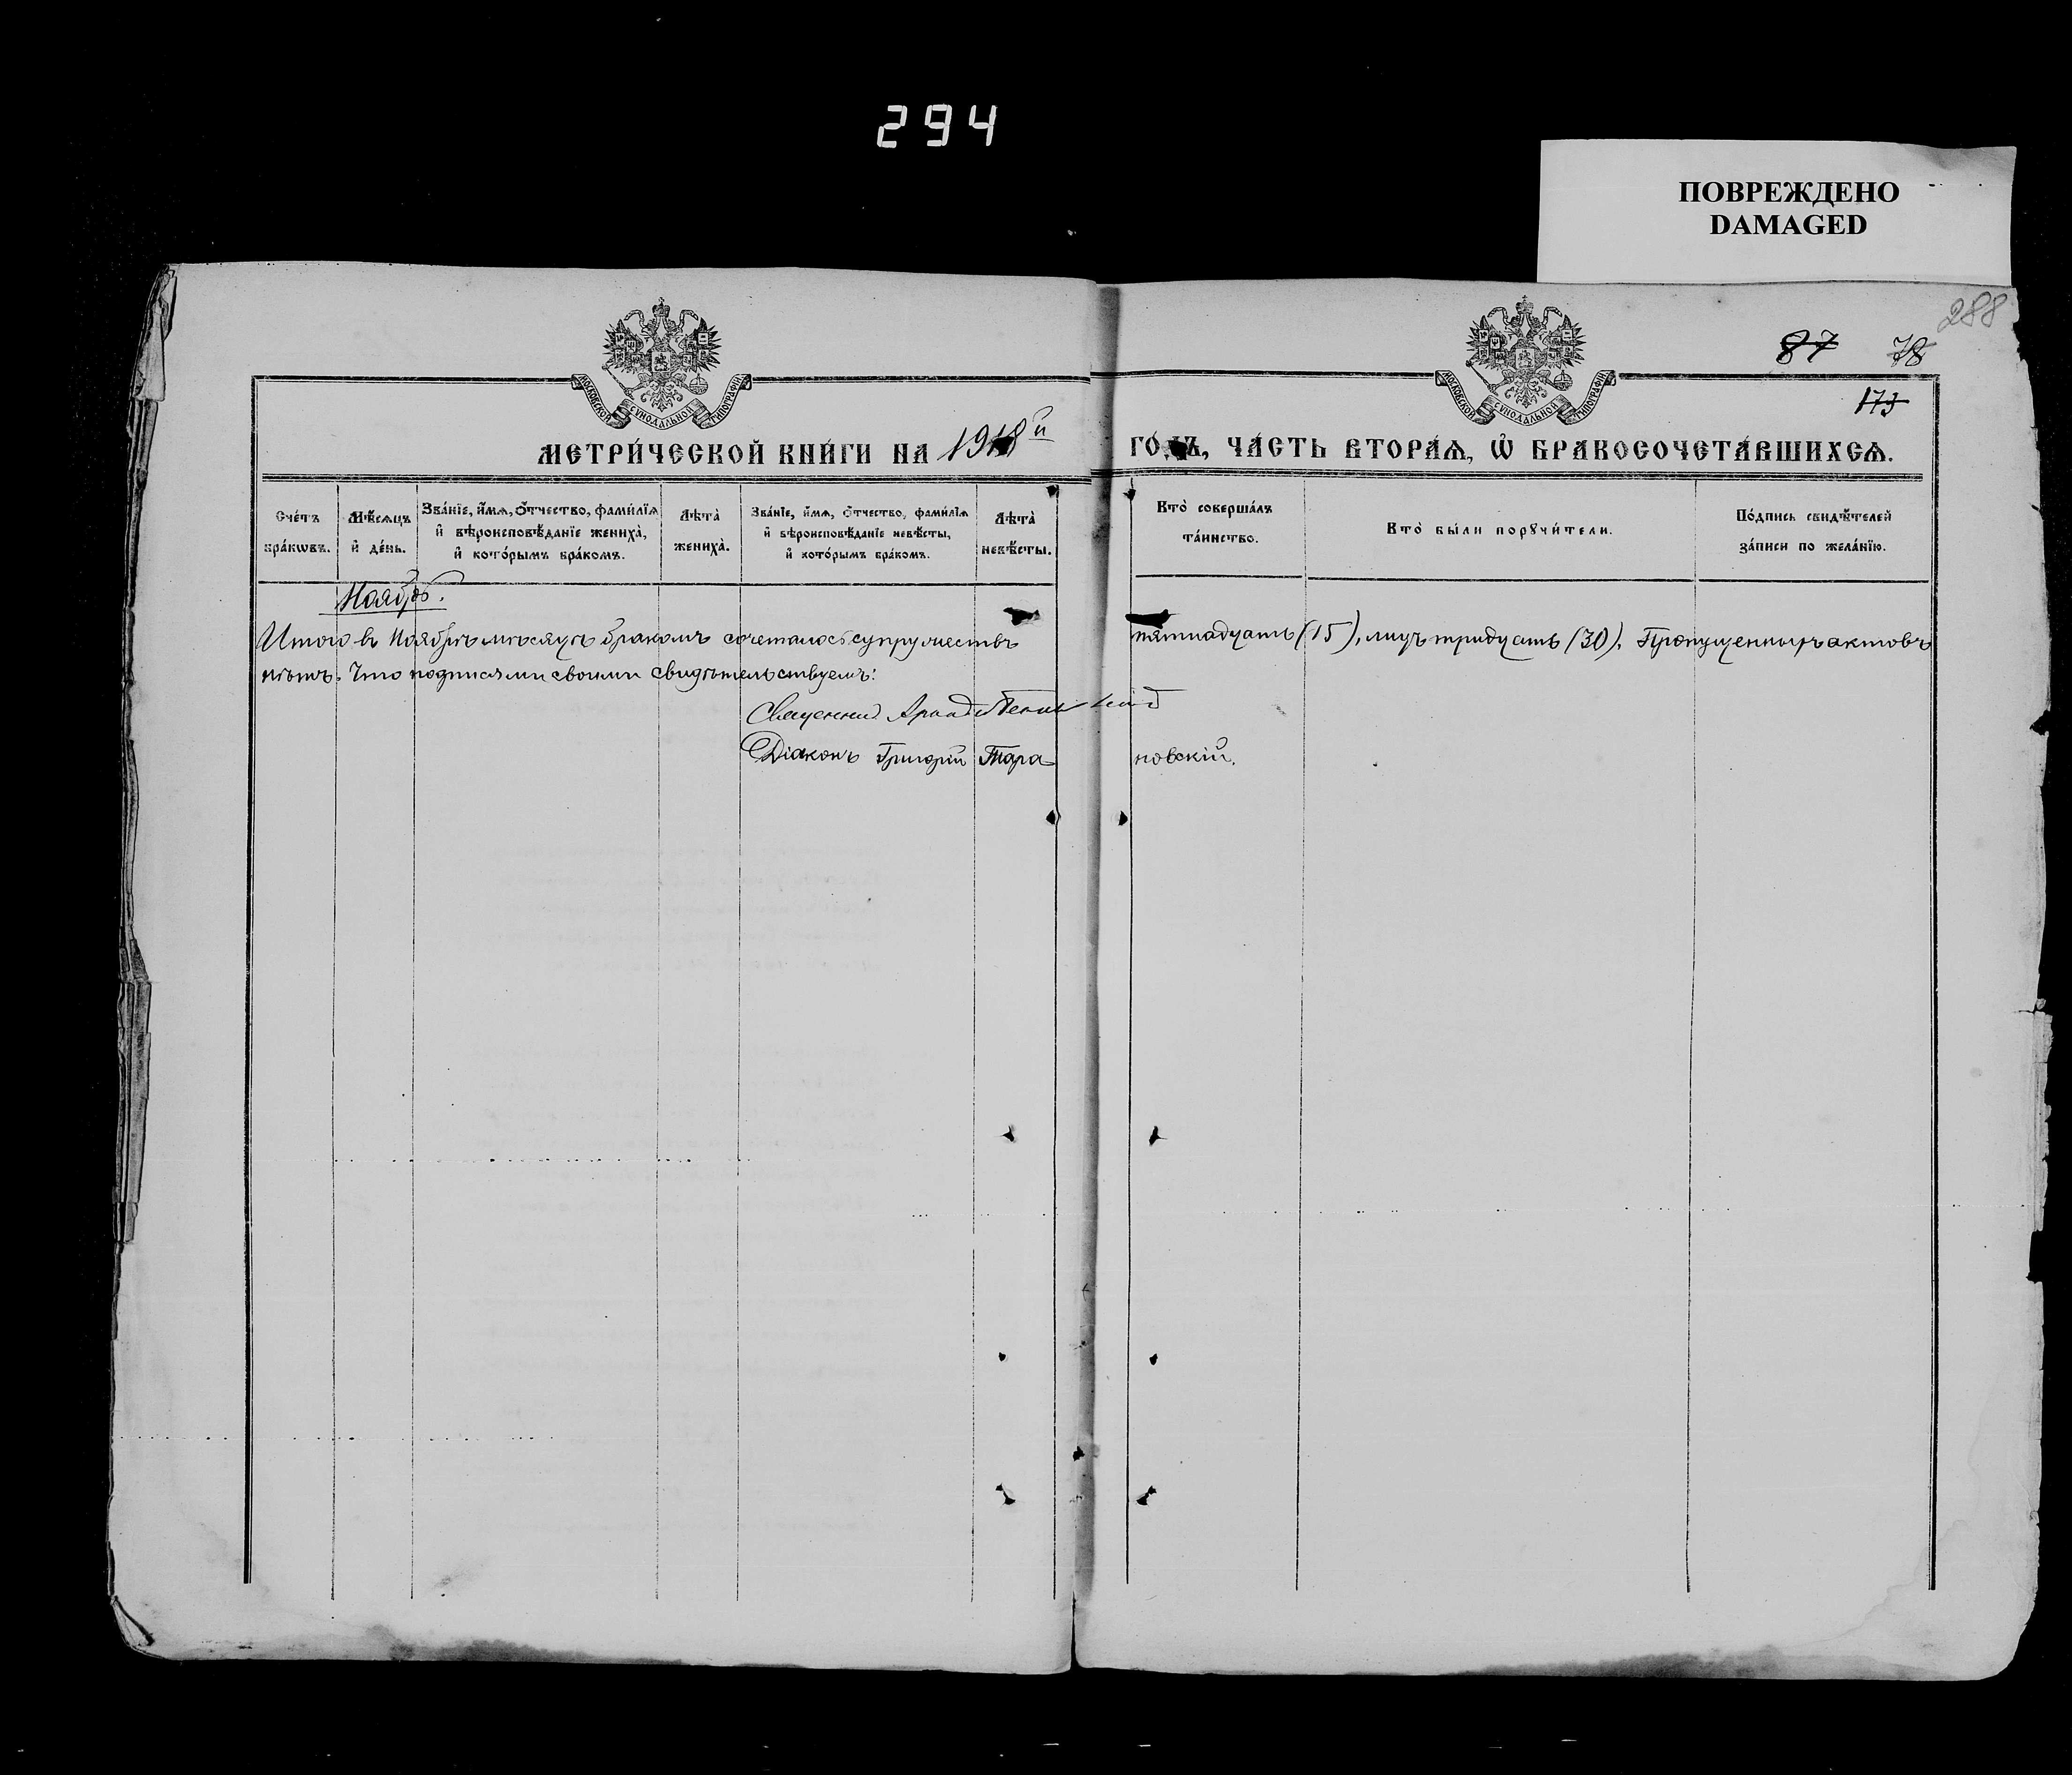 294
ПОВРЕЖДЕНО
DAMAGED
288
87 78
173
МОСКОВСКОЙ СУНОДАЛЬНОЙ ТИПОГРАФІИ
МОСКОВСКОЙ СУНОДАЛЬНОЙ ТИПОГРАФІИ
МЕТРИ́ЧЕСКОЙ КНИ́ГИ НА 1918й ГО́ДЪ, ЧА́СТЬ ВТОРА́Ѧ, Ѽ БРАКОСОЧЕТА́ВШИХСѦ.
Сче́тъ бра́кѡвъ.
Мѣ́сѧцъ и҆ де́нь.
Зва́нїе, и҆́мѧ, ѻ҆́тчество, фами́лїѧ и҆ вѣроисповѣ́данїе жениха̀, и҆ кото́рымъ бра́комъ.
Лѣта̀ жениха̀.
Зва́нїе, и҆́мѧ, ѻ҆́тчество, фами́лїѧ и҆ вѣроисповѣ́данїе невѣ́сты, и҆ кото́рымъ бра́комъ.
Лѣта̀ невѣ́сты.
Кто̀ соверша́лъ та́инство.
Кто̀ бы́ли порꙋчи́тели.
По́дпись свидѣ́телей за́писи по жела́нїю.
Ноябрь.
Итого въ Ноябрѣ мѣсяцѣ бракомъ сочеталось супружествъ пятнадцать (15), лицъ тридцать (30). Пропущенныхъ актовъ
нѣтъ. Что подписями своими свидѣтельствуемъ:
Священник
Діаконъ Григорій Тарановскій.